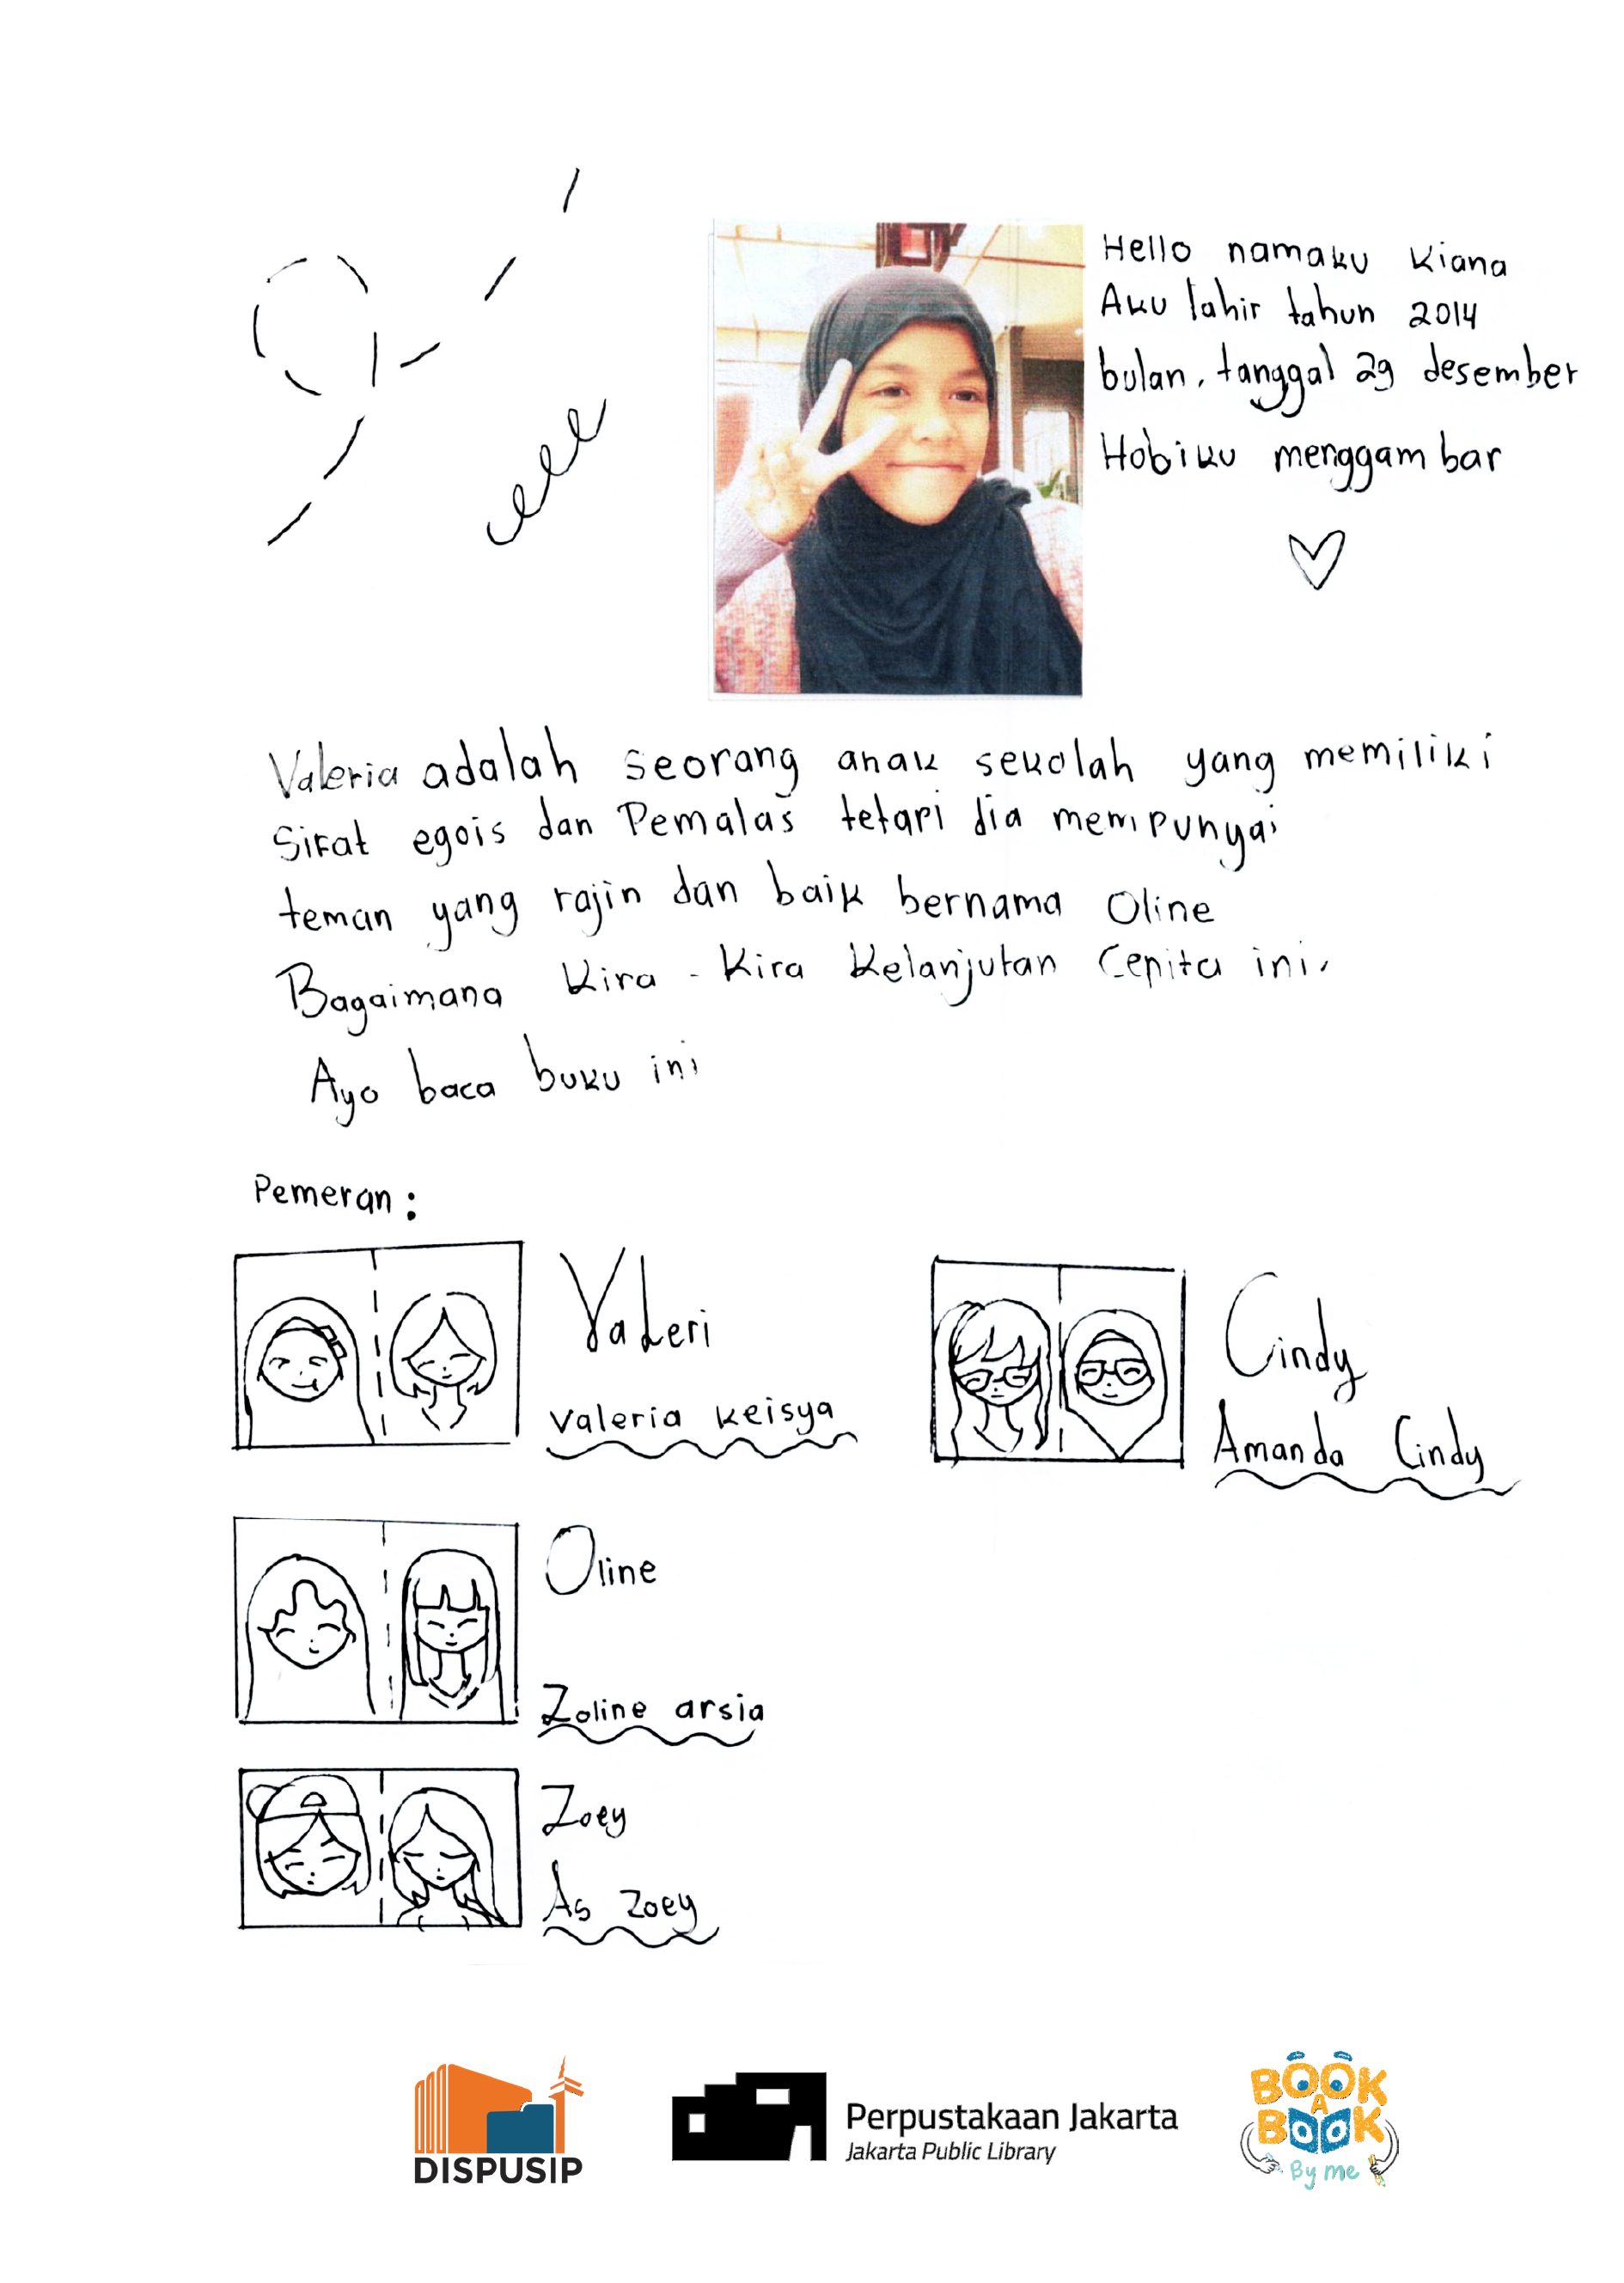 Hello namaku Kiana
Aku lahir tahun 2014
bulan, tanggal 29 desember
Hobiku menggambar
Valeria adalah seorang anak sekolah yang memiliki
Sifat egois dan Pemalas tetapi dia mempunyai
teman yang rajin dan baik bernama Oline
Bagaimana Kira - Kira Kelanjutan Cerita ini,
Ayo baca buku ini
Pemeran :
Valeri
Valeria keisya
Cindy
Amanda Cindy
Oline
Zoline arsia
Zoey
As Zoey
DISPUSIP
Perpustakaan Jakarta
Jakarta Public Library
BOOK
A
BOOK
By me